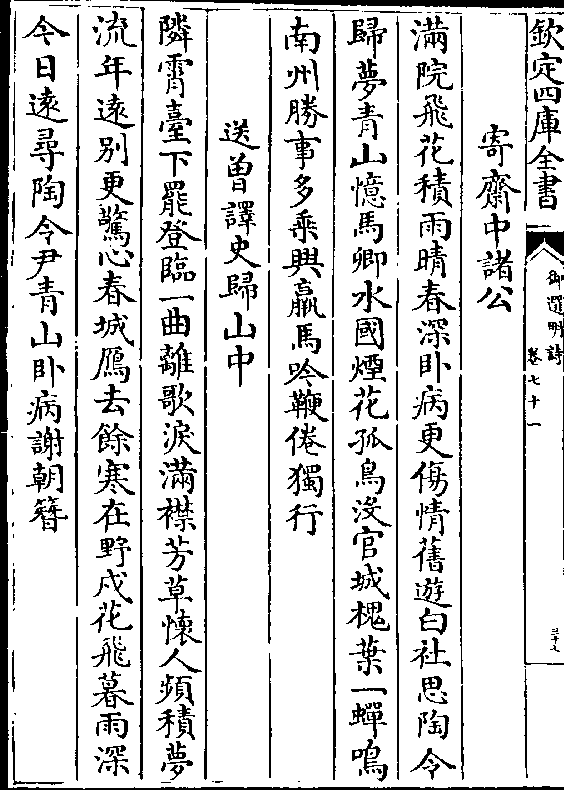 欽定四庫全書
御選明詩
卷七十一
三十七
寄齋中諸公
滿院飛花積雨晴春深卧病更傷情舊遊白社思陶令
歸夢青山憶馬卿水國煙花孤鳥沒官城槐葉一蟬鳴
南州勝事多乘興羸馬吟鞭倦獨行
送曾譯史歸山中
隣霄臺下罷登臨一曲離歌淚滿襟芳草懷人頻積夢
流年遠別更驚心春城鴈去餘寒在野戍花飛暮雨深
今日遠尋陶令尹青山卧病謝朝簪